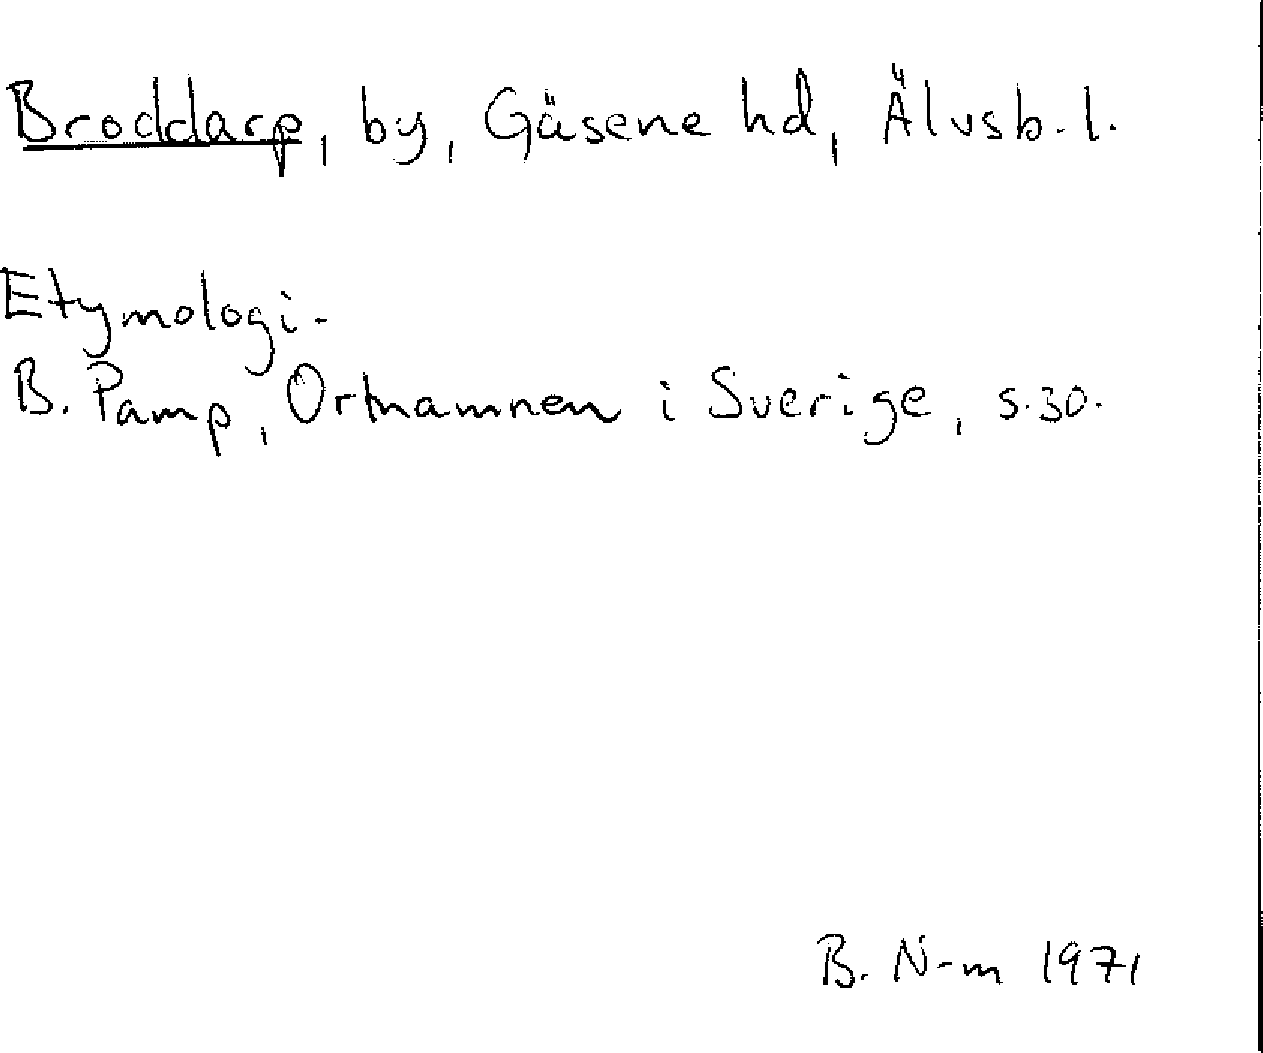 Broddarp, by, Gäsene hd, Älvsb. l.
Etymologi.
B. Pamp, Ortnamnen i Sverige, s. 30.
B. N-m 1971